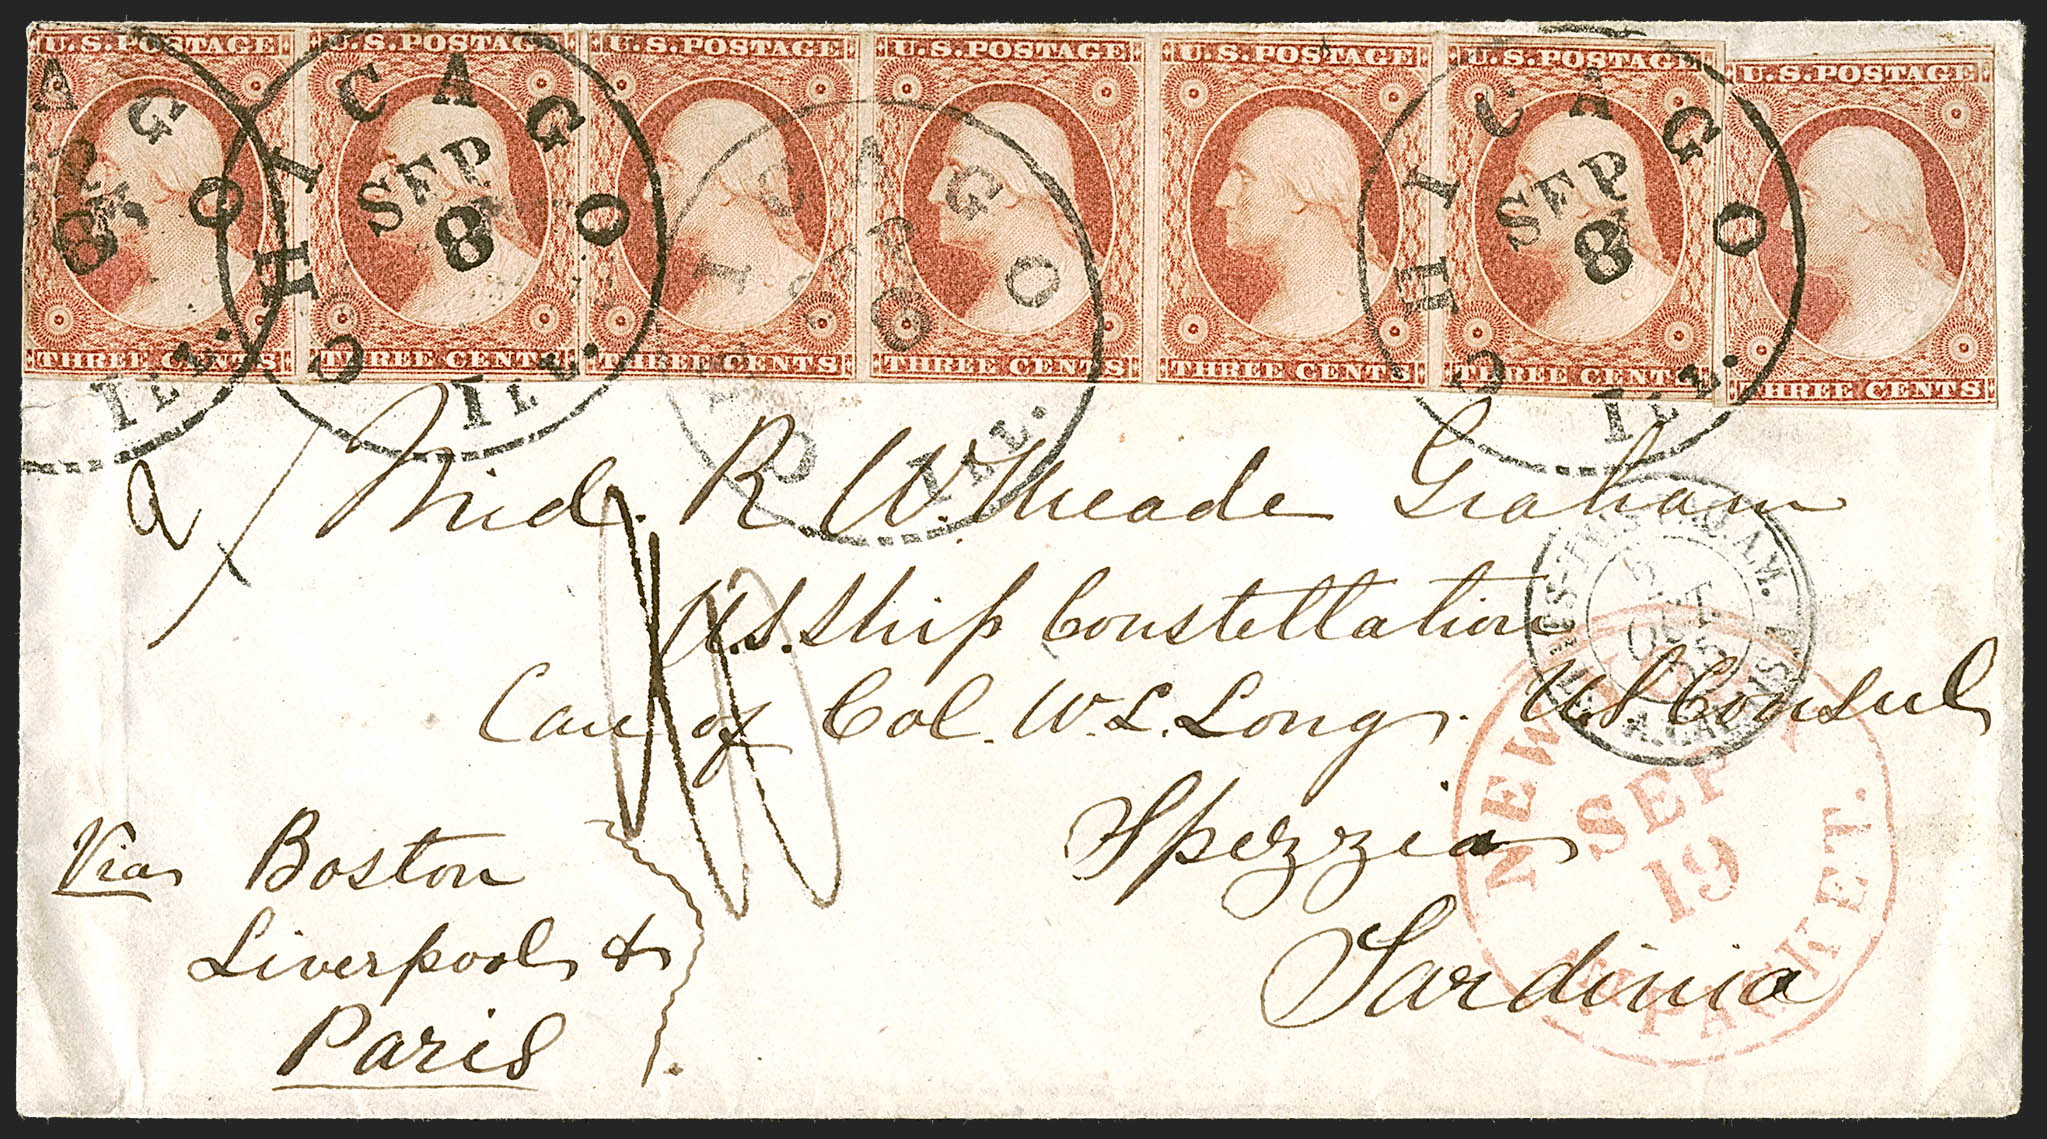 U.S. POSTAGE U.S. POSTAGE U.S. POSTAGE U.S. POSTAGE U.S. POSTAGE U.S. POSTAGE U.S. POSTAGE
AGO ILL. SEP 8
CHICAGO ILL. SEP 8
CHICAGO ILL. SEP 8
CHICAGO ILL. SEP 8
THREE CENTS THREE CENTS THREE CENTS THREE CENTS THREE CENTS THREE CENTS THREE CENTS
Mid. R. W. Meade Graham
U.S. Ship Constellation
Care of Col. W. L. Long. US Consul
Spezzia
Sardinia
Via Boston
Liverpool &
Paris
SERV. AM. A. CALAIS
5 OCT
NEW YORK AM. PACKET.
SEP 19